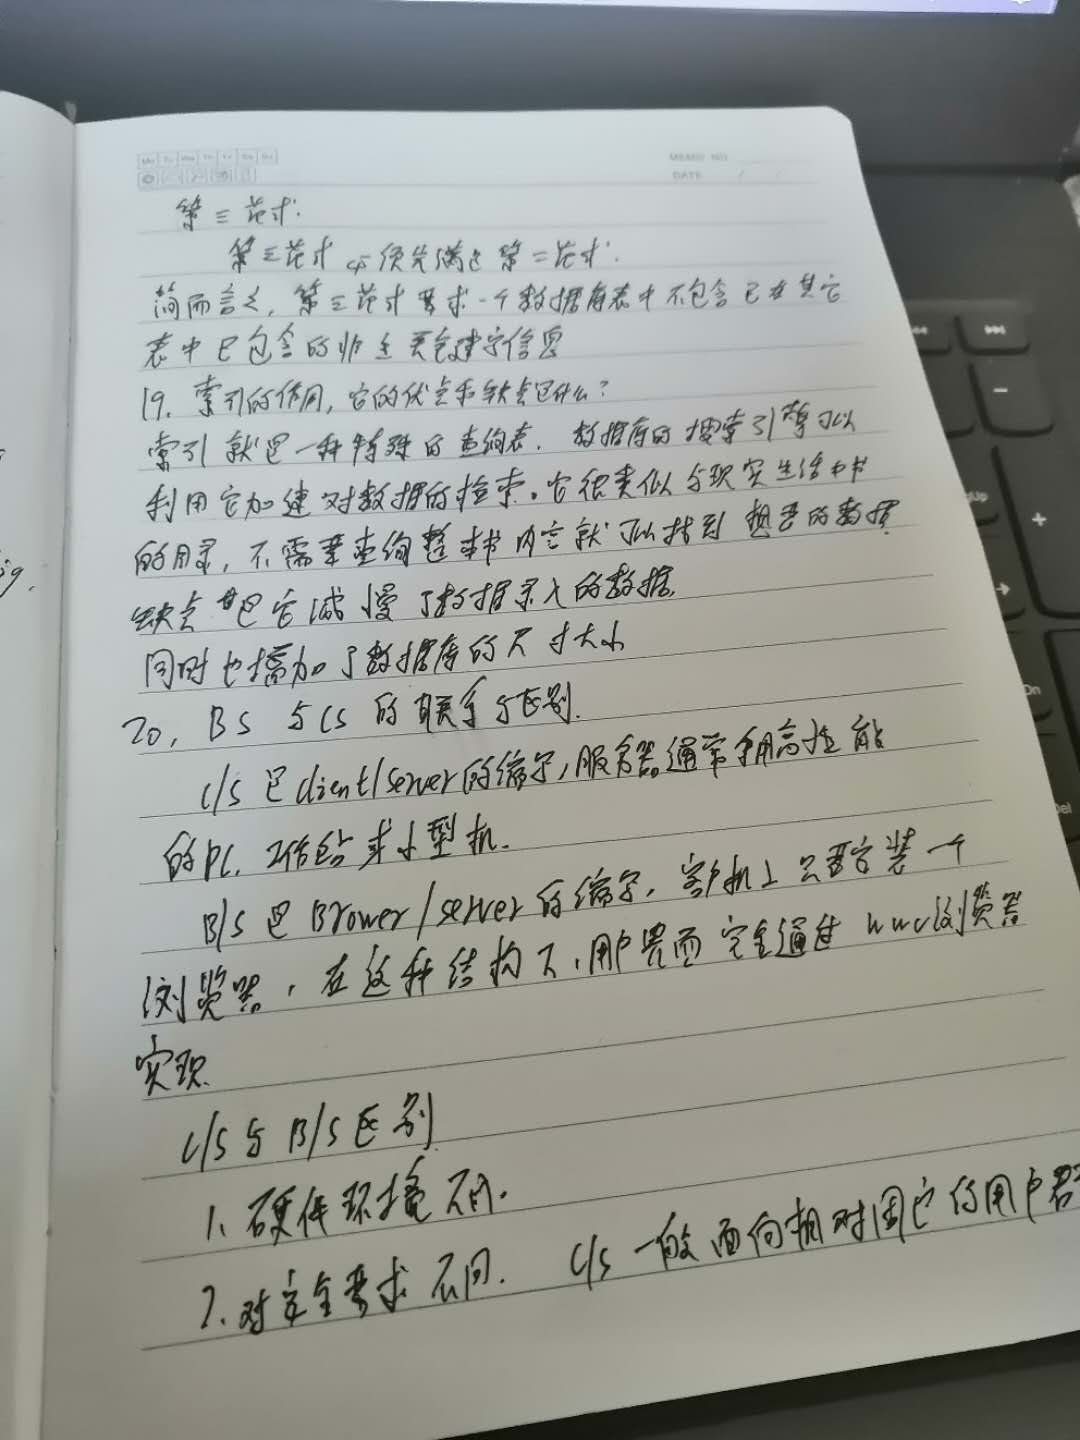 Mo Tu We Th Fr Sa Su
MEMO NO.
DATE / /
第三范式:
第三范式 必须先满足 第二范式.
简而言之, 第三范式要求一个数据库表中不包含已在其它
表中已包含的非主关键字信息
19. 索引的作用, 它的优点和缺点是什么?
索引就是一种特殊的查询表. 数据库的搜索引擎可以
利用它加速对数据的检索。它很类似与现实生活中书
的目录, 不需要查询整本书内容就可以找到想要的数据
缺点 是它减慢了数据录入的数据.
同时也增加了数据库的尺寸大小
20, BS 与CS 的联系与区别.
C/S 是client/server的缩写, 服务器通常采用高性能
的PC. 工作站或小型机.
B/S 是 Brower/server 的缩写. 客户机上只要安装一个
浏览器, 在这种结构下, 用户界面完全通过 www浏览器
实现.
C/S与B/S区别
1. 硬件环境不同.
2. 对安全要求不同. C/S 一般面向相对固定的用户群
Del